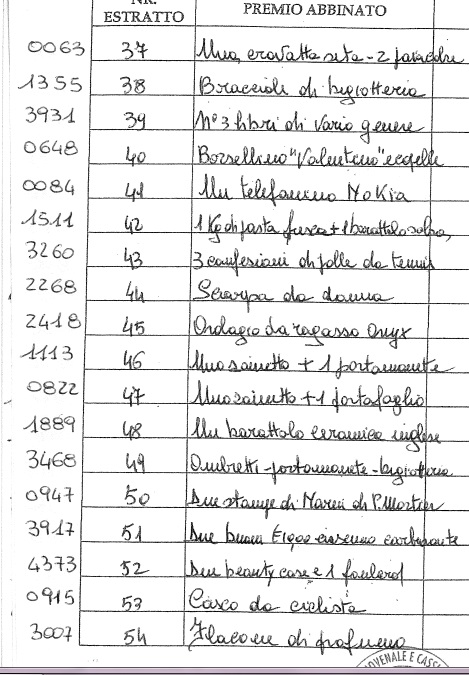 NR.
ESTRATTO PREMIO ABBINATO
0063 37 Una cravatta seta - 2
1355 38 Bracciale di bigiotteria
3931 39 N° 3 libri di vario genere
0648 40 Borsellino "Valentino" ecopelle
0084 41 Un telefonino Nokia
1511 42 1 Kg di pasta fresca + 1 barattolo salsa,
3260 43 3 confezioni di palle da tennis
2268 44 Sciarpa da donna
2418 45 Orologio da ragazzo Onyx
1113 46 Uno zainetto + 1 portamonete
0822 47 Uno zainetto + 1 portafoglio
1889 48 Un barattolo ceramica inglese
3468 49 Ombretti - portamonete - bigiotteria
0947 50 Due stampe di Marini di P. Mortier
3917 51 Due buoni carburante
4373 52 Due beauty case e 1 foulard
0915 53 Casco da ciclista
3007 54 Flacone di profumo
OVENALE E CASS